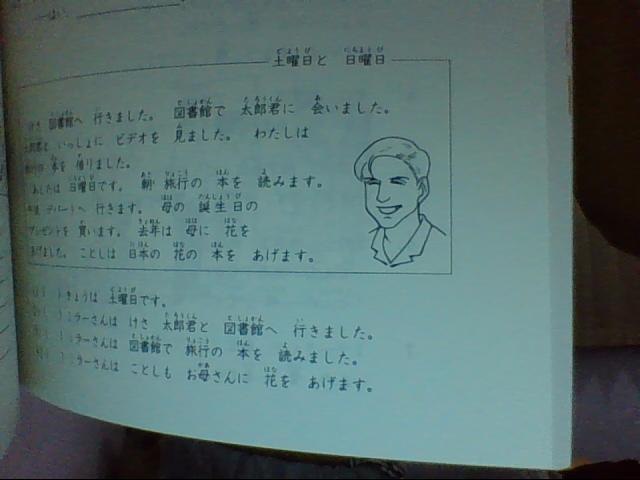 はい、
土曜日と 日曜日
けさ 図書館へ 行きました。 図書館で 太郎君に 会いました。
太郎君と いっしょに ビデオを 見ました。 わたしは
旅行の 本を 借りました。
あしたは 日曜日です。 朝 旅行の 本を 読みます。
午後 デパートへ 行きます。 母の 誕生日の
プレゼントを 買います。 去年は 母に 花を
あげました。 ことしは 日本の 花の 本を あげます。
1) ( ) きょうは 土曜日です。
2) ( ) ミラーさんは けさ 太郎君と 図書館へ 行きました。
3) ( ) ミラーさんは 図書館で 旅行の 本を 読みました。
4) ( ) ミラーさんは ことしも お母さんに 花を あげます。